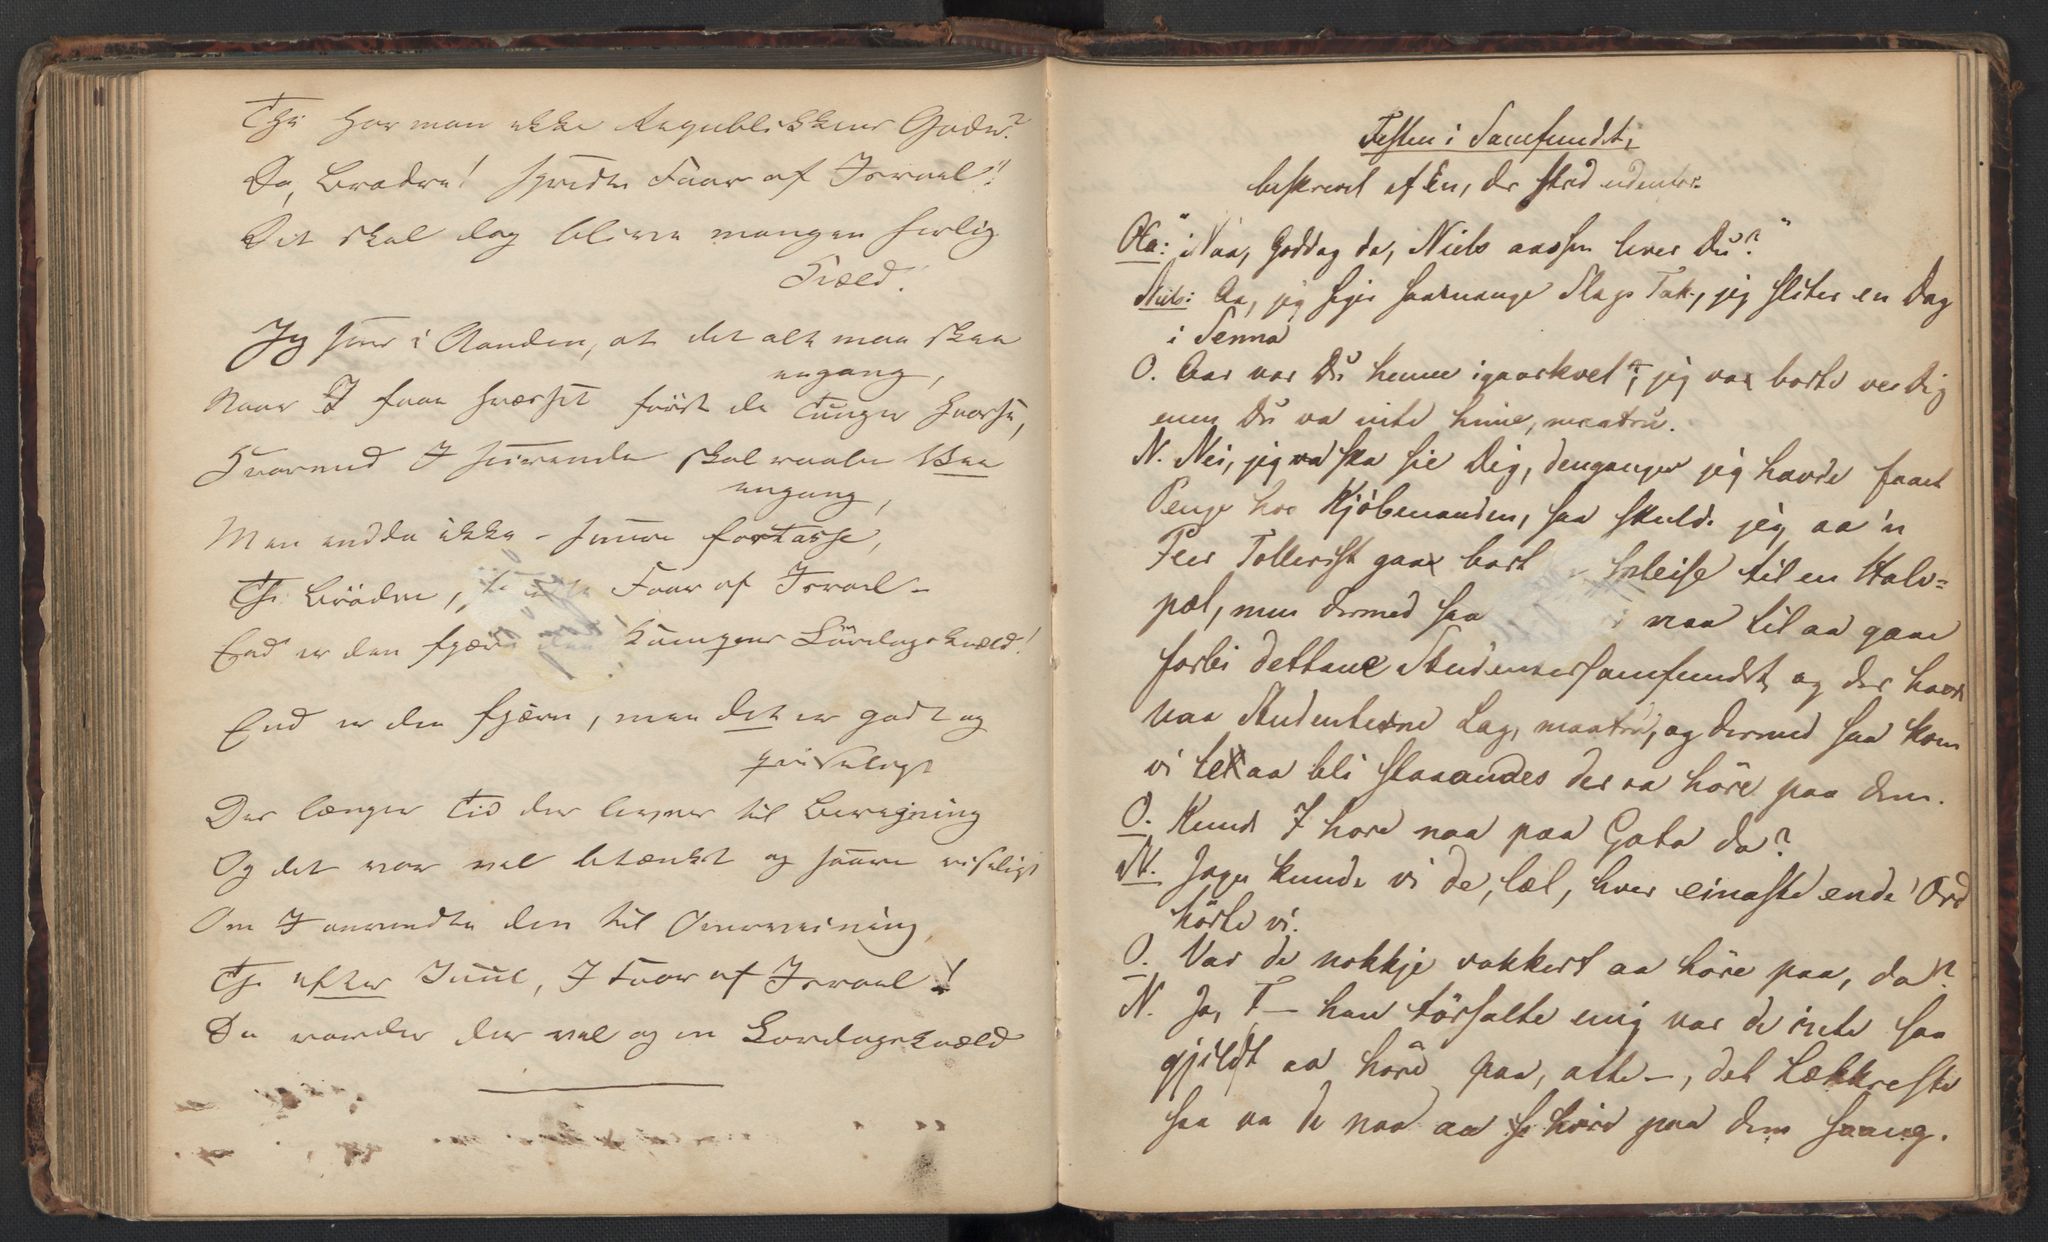 Thi har man ikke Republikkens Goder?
Da, Brødre! spredte Faar af Israel!
Det skal dog blive mangen herlig
Kveld!
Jeg seer i Aanden, at det alt maa skee
engang,
Naar I faae hvæsset først de Tunger hvasse,
Hvormed I seirende skal raabe Vee
engang,
Men endda ikke – senere fortasse,
Thi Brødre, Faar af Israel –
End er den fjærn Kampens Lördagskvæld!
End er den fjærn, men det er godt og
priseligt
Des længer Tid der levner til Beregning
Og det var vel betænkt og saare viseligt
Om I anvendte den til Overveining,
Thi efter Juul, I Faar af Israel!
Da vorder der vel og en Lørdagskvæld
Festen i Samfundet,
beskrevet af En, der stod udenfor.
Ola: "Naa, Goddag da, Niels aassen lever Du?"
Niels: Aa, jeg siger saamange Slags Tak, jeg sliter en Dag
i Senna
O. Aar var Du henne igaarkvel'n, jeg var borte ve Dig
men Du va inte hime, maatru.
N. Nei, jeg ska sie Dig, dengangen jeg havde faaet
Penge hos Kjöbmanden, saa skulde jeg aa 'n
Peer Tollerst gaa bort spleise til en Halv=
pæl, men dermed saa naa til aa gaae
forbi dettane Studentersamfundet, og der havde
naa Studenterne Lag, maatru, og dermed saa kom
vi te aa bli staaandes der aa höre paa dem.
O. Kunde I höre naa paa Gata da?
N. Jagu kunde vi de, læl, hver eineste ende Ord
hörte vi.
O. Var de nokkje vakkert aa höre paa, da?
N. Ja, F – han törsalte mig var de inte saa
gjildt aa höre paa, atte –, det Lækkreste
saa va de naa aa höre paa dem saang.